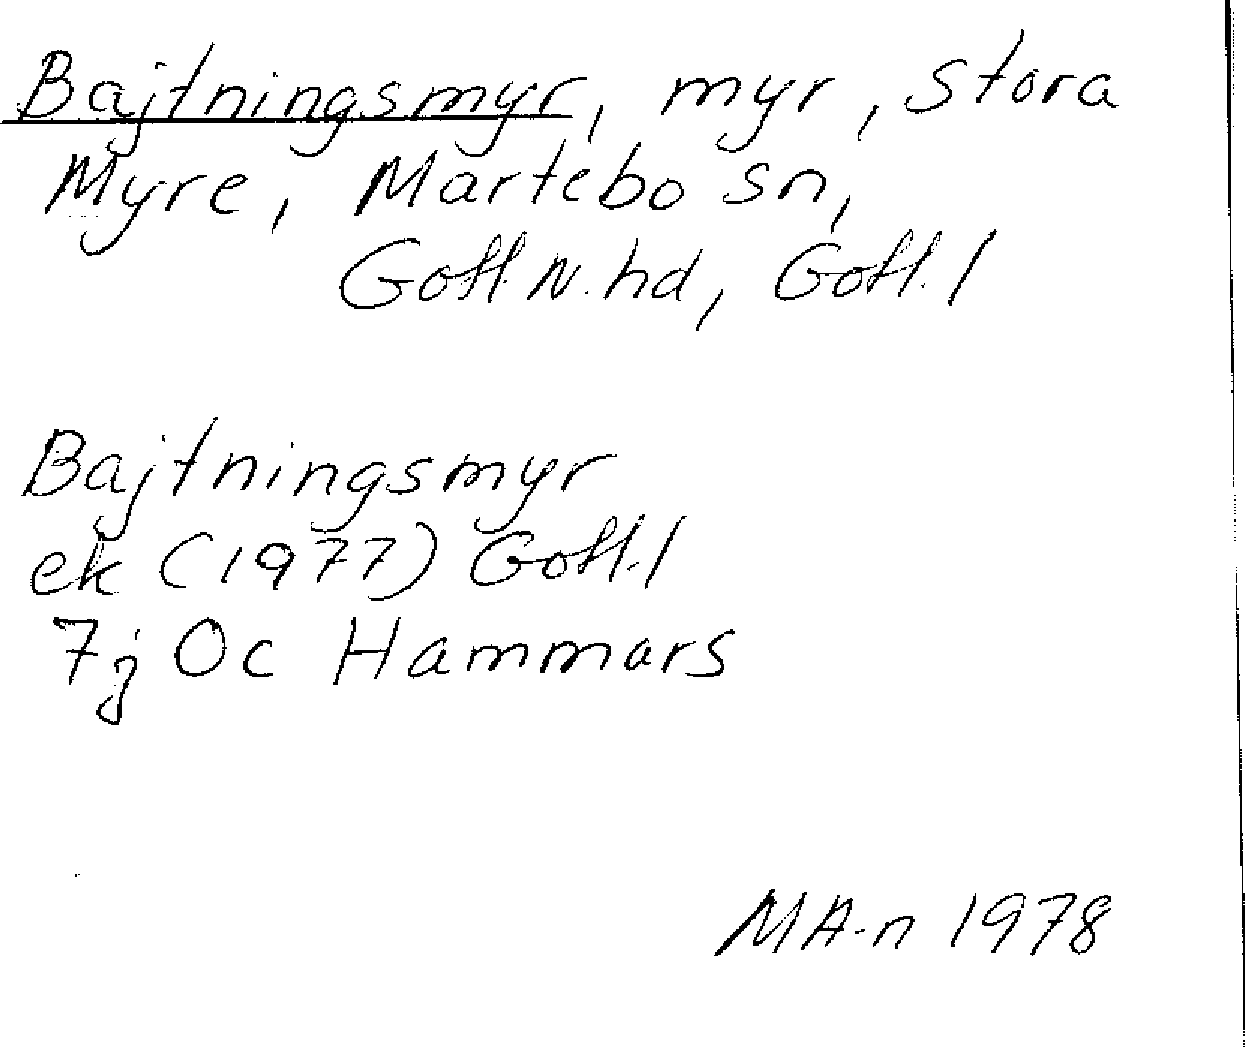 Bajtningsmyr, myr, Stora
Myre, Martebo sn,
Gotl N. hd, Gotl. l
Bajtningsmyr
ek (1977) Gotl. l
7j Oc Hammars
MA-n 1978